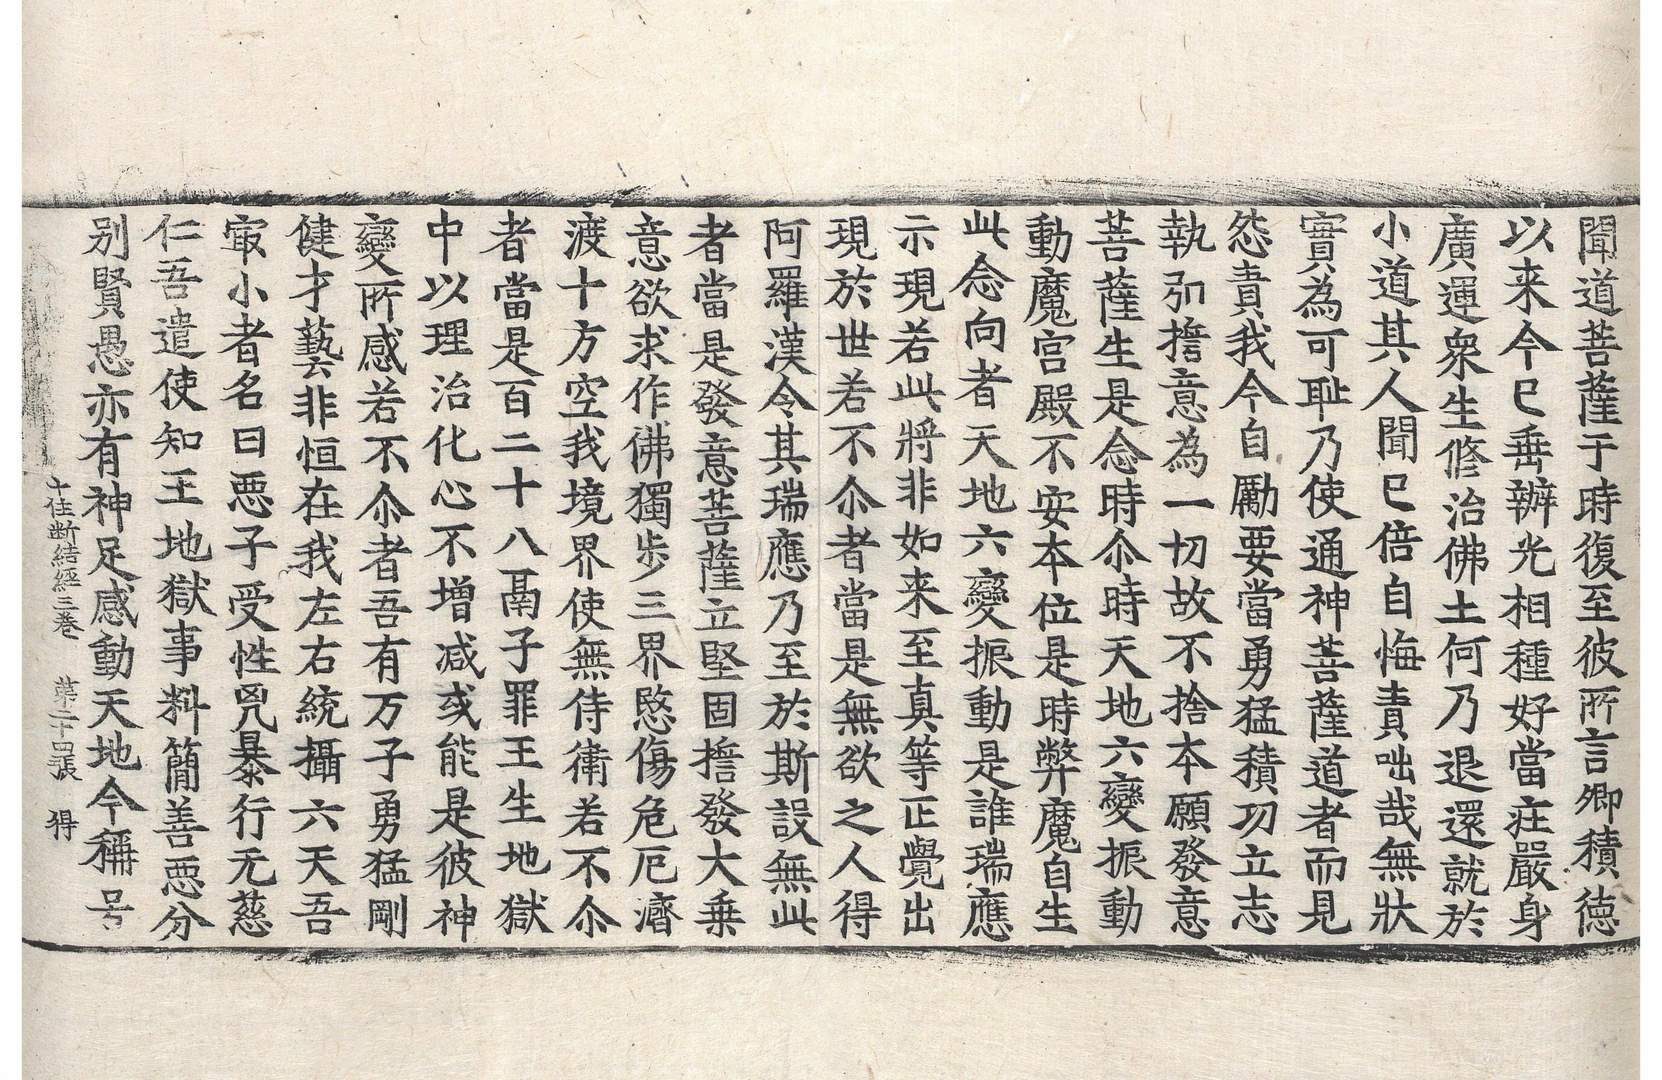 聞道菩薩于時復至彼所言卿積德
以来今已垂辦光相種好當庄嚴身
廣運衆生修治佛土何乃退還就於
小道其人聞已倍自悔責咄哉無狀
實為可耻乃使通神菩薩道者而見
怨責我今自勵要當勇猛積功立志
執弘擔意為一切故不捨本願發意
菩薩生是念時尒時天地六變振動
動魔宫殿不安本位是時弊魔自生
此念向者天地六變振動是誰瑞應
示現若此將非如来至真等正覺出
現於世若不尒者當是無欲之人得
阿羅漢今其瑞應乃至於斯設無此
者當是發意菩薩立堅固擔發大乗
意欲求作佛獨步三界愍傷危厄濟
渡十方空我境界使無侍衛若不尒
者當是百二十八鬲子罪王生地獄
中以理治化心不增減或能是彼神
變所感若不尒者吾有万子勇猛剛
健才藝非恒在我左右統攝六天吾
㝡小者名曰惡子受性凶暴行无慈
仁吾遣使知王地獄事料簡善惡分
別賢愚亦有神足感動天地今稱号
十住断結經三卷 第二十四張 得